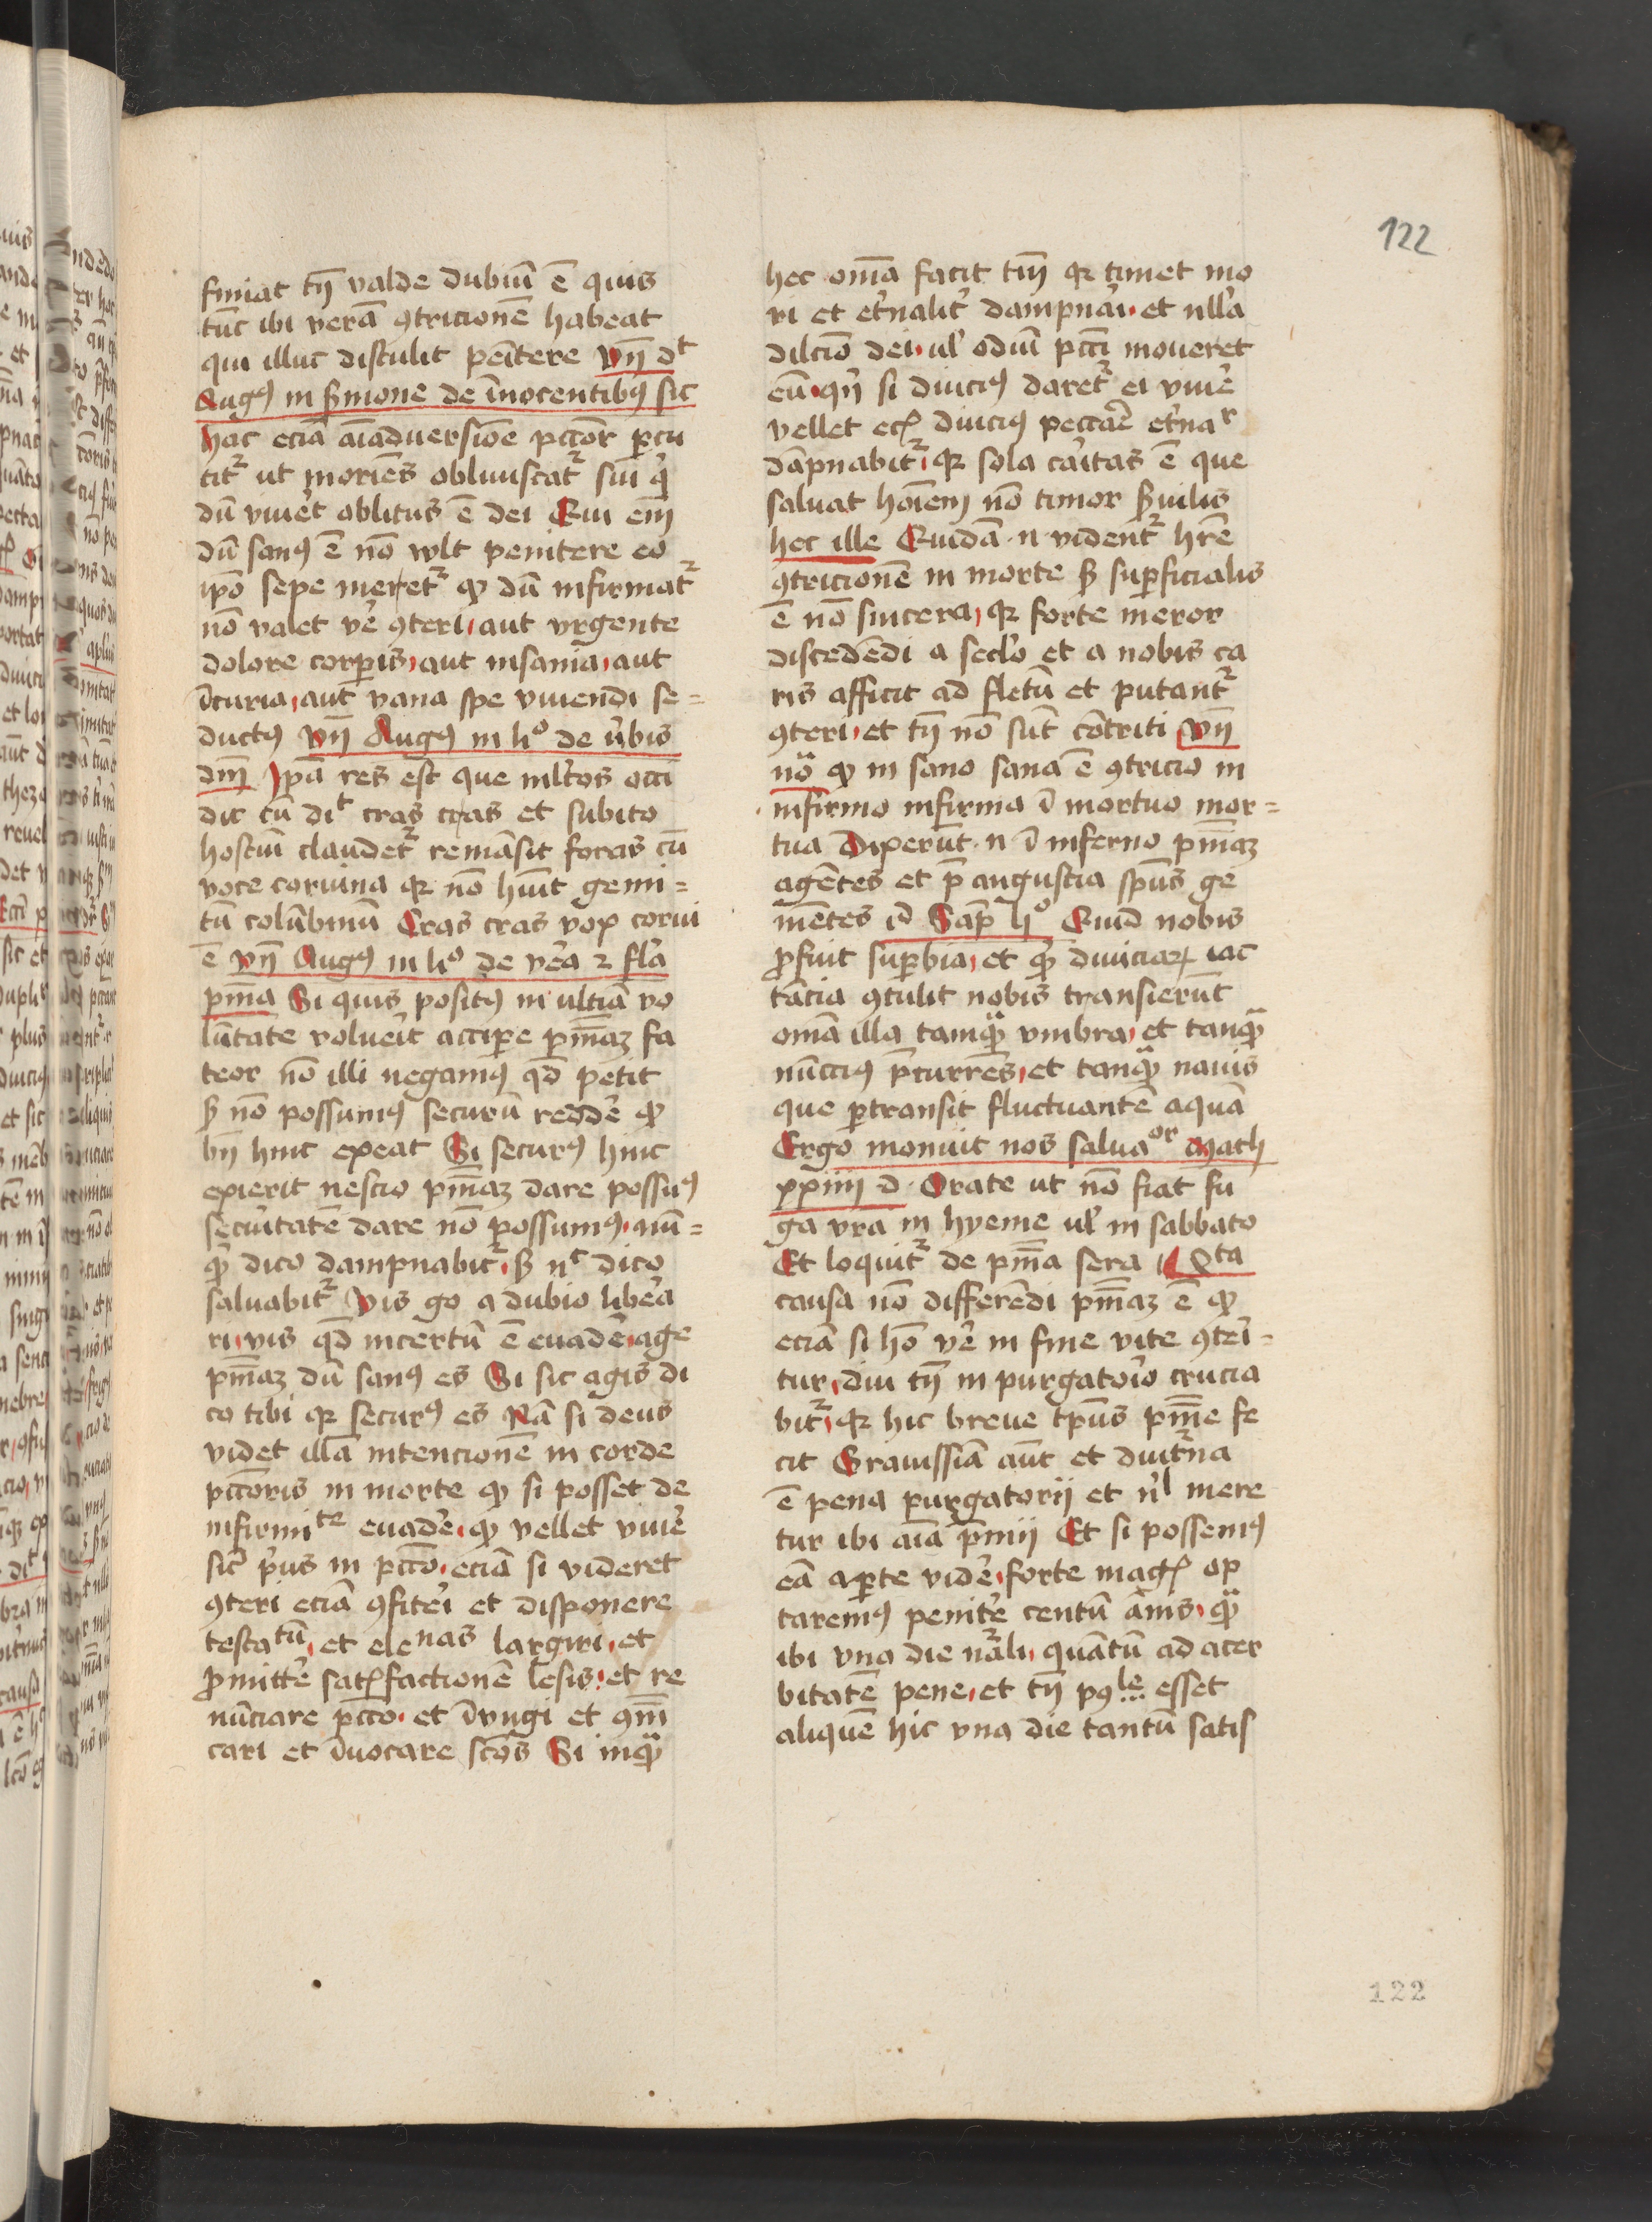 122
finiat tn̄ valde dubiū ē quis
tūc ibi verā ꝯtricionē habeat
qui illuc distulit pēitere vn̄ dt
Augꝯ in s̄mone de īnocentibꝯ sic
hac eciā aīaduersiōe pctōr ꝑcu
titᷣ ut moriēs obliuiscatᷣ sui qͥ
dū viuēt oblitus ē dei Qui em̄
dū sanꝯ ē nō wlt penitere eo
ip̄o sepe meretᷣ qꝫ dū infirmatᷣ
nō valet ve᷑ ꝯteri aut vrgente
dolore corꝑis aut insania aut
īcuria aut vana spe viuendi se=
ductꝯ vn̄ Augꝯ in liº de v᷑bis
dnī Ip̄a res est que ml᷑tos occi
dit cū dit cras cras et subito
hostiū claudetᷣ remāsit foras cū
voce coruina qꝛ nō hūit gemi=
tū colūbinū Cras cras vox corui
ē vn̄ Augꝯ in liº de ve᷑a ⁊ fl᷑a
pn̄ia Si quis positꝯ in ultīa vo
lūtate volueīt accip̄e pn̄iaꝫ fa
teor nō illi negamꝯ qd̄ petit
sꝫ nō possumꝯ securū redde᷑ qꝫ
bn̄ hinc exeat Si securꝯ hinc
exierit nescio pn̄iaꝫ dare possuꝯ
secu᷑itatē dare nō possumꝯ nū=
qͣ dico dampnabit᷑ sꝫ nc dico
saluabitᷣ Vis go a dubio libe᷑a
ri vis qd̄ incertū ē euade᷑ age
pn̄iaꝫ dū sanꝯ es Si sic agis di
co tibi qꝛ securꝯ es Nā si deus
videt illā intencionē in corde
pctōris in morte qꝫ si posset de
infirmite euade᷑ qꝫ vellet viue᷑
sic᷑ pͥus in pctō eciā si videret
ꝯteri eciā ꝯfite᷑i et disponere
testatū et elenas largiri et
ꝓmitte᷑ satꝭfactionē lesis et re
nūciare pctō et īvngi et ꝯm̄
cari et īuocare sctōs Si inqͣ
hec om̄ia facit tm̄ qꝛ timet mo
ri et et᷑nalit᷑ dampna᷑i et null᷑a
dilctō dei ul᷑ odiū pctī moueret
eū qn̄ si diuciꝯ daretᷣ ei viue᷑
vellet ecꝭ diuciꝯ peccāe᷑ et᷑nar
dāpnabitᷣ qꝛ sola ca᷑itas ē que
saluat hoīem nō timor s̄uilis
hec ille Quidā n vident᷑ hr̄e
ꝯtricionē in morte sꝫ suꝑficialis
ē nō sincera qꝛ forte meror
discedēdi a seclo᷑ et a nobis ca
ris afficit ad fletū et putantᷣ
ꝯteri et tn̄ nō sūt cōtriti vn̄
nō qꝫ in sano sana ē ꝯtricio in
infirmo infirma ī mortuo mor=
tua Dixerūt n ī inferno pn̄iaꝫ
agētes et p̄ angustia spūs ge
mētes id Sap̄ liº Quid nobis
ꝓfuit suꝑbia et qͥ diuiciaꝝ iac
tācia ꝯtulit nobis transierūt
om̄ia illa tamqͣ vmbra et tanqͣ
nūcciꝯ p̄currēs et tanqͣ nauis
que ꝑtransit fluctuantē aquā
Ergo monuit nos saluaor Math
xxiiii d Orate ut nō fiat fu
ga vr̄a in hyeme ul᷑ in sabbato
Et loquitᷣ de pn̄ia sera
causa nō differēdi pn̄iaꝫ ē qꝫ
eciā si hō ve᷑ in fine vite ꝯte᷑i=
tur diu tn̄ in purgato᷑io crucia
bitᷣ qꝛ hic breue tp̄us pn̄ie fe
cit Grauissīa aūt et diuit᷑na
ē pena purgatorii et nl᷑ mere
tur ibi aīa p̄mii Et si possemꝯ
eā aꝑte vide᷑ forte magꝭ op
taremꝯ penite᷑ centū ānis qͣ
ibi vna die nāli quātū ad acer
bitatē pene et tn̄ pꝯle esset
aliquē hic vna die tantū satis
122